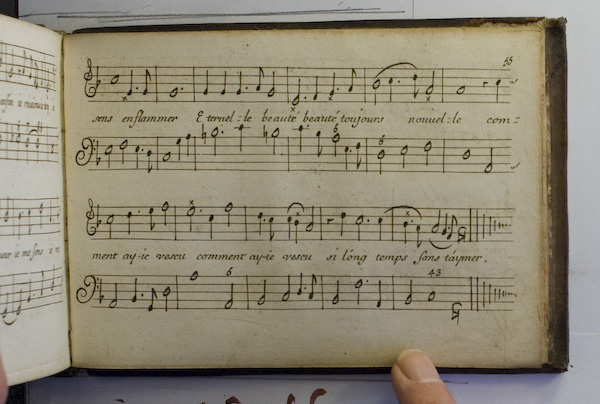 55
sens enflammer Eternel:le beauté beauté toujours nouvel:le com:
6 6
ment ay-ie vescu comment ay-ie vescu si long temps sans t'aymer.
6 43